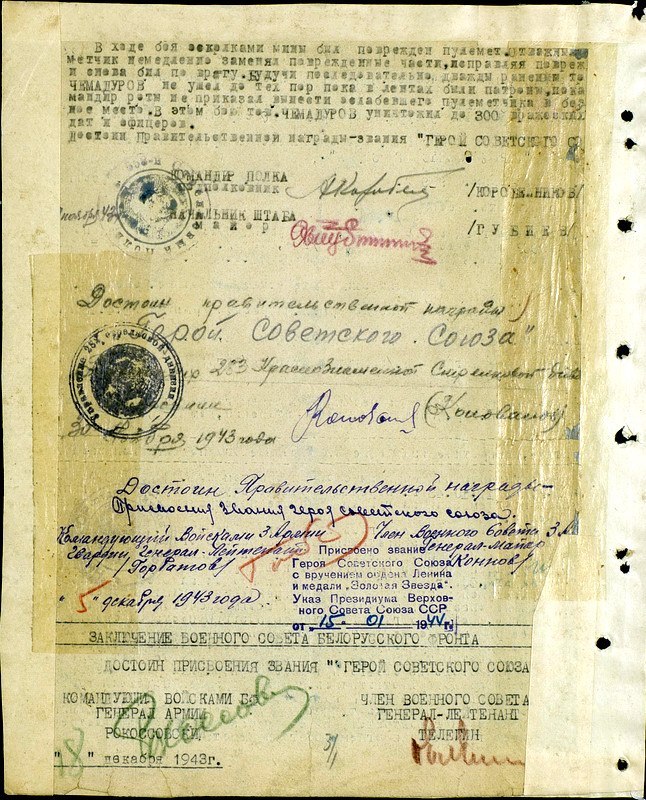 В ходе боя осколками мины был поврежден пулемет, отважный
метчик немедленно заменял поврежденные части, исправляя повреж
и снова бил по врагу. Будучи последовательно дважды раненим то
ЧЕМАДУРОВ не ушел до тех пор пока в лентах были патроны, пока
мандир роты не приказал вынести ослабевшего пулеметчика в без
ное место. В этом бою тов. ЧЕМАДУРОВ уничтожил до 300 вражеских
дат и офицеров.
Достоин Правительственной награды-звания "ГЕРОЙ СОВЕТСКОГО С
КОМАНДИР ПОЛКА
подполковник /КОРОБЕЙНИКОВ/
ноября 43 г. НАЧАЛЬНИК ШТАБА
майор /ГУБИЕВ/
Достоин правительственной награды
"Герой Советского Союза"
283 Краснознаменной Стрелковой
(Коновалов)
30 ноября 1943 года
Достоин Правительственной награды-
присвоения звания героя советского союза.
Командующий Войсками 3 Армии Член Военного Совета 3 А
Гвардии Генерал-Лейтенант Генерал-Майор
/Горбатов/ Коннов/
Присвоено звание
Героя Советского Союза
с вручением ордена Ленина
и медали „Золотая Звезда".
Указ Президиума Верхов-
ного Совета Союза ССР
от „15" 01 1944 г.
"5" декабря 1943 года
ЗАКЛЮЧЕНИЕ ВОЕННОГО СОВЕТА БЕЛОРУССКОГО ФРОНТА
ДОСТОИН ПРИСВОЕНИЯ ЗВАНИЯ "ГЕРОЙ СОВЕТСКОГО СОЮЗА
КОМАНДУЮЩИЙ ВОЙСКАМИ БФ ЧЛЕН ВОЕННОГО СОВЕТА
ГЕНЕРАЛ АРМИИ ГЕНЕРАЛ-ЛЕЙТЕНАНТ
РОКОССОВСКИЙ ТЕЛЕГИН
"18" декабря 1943г.